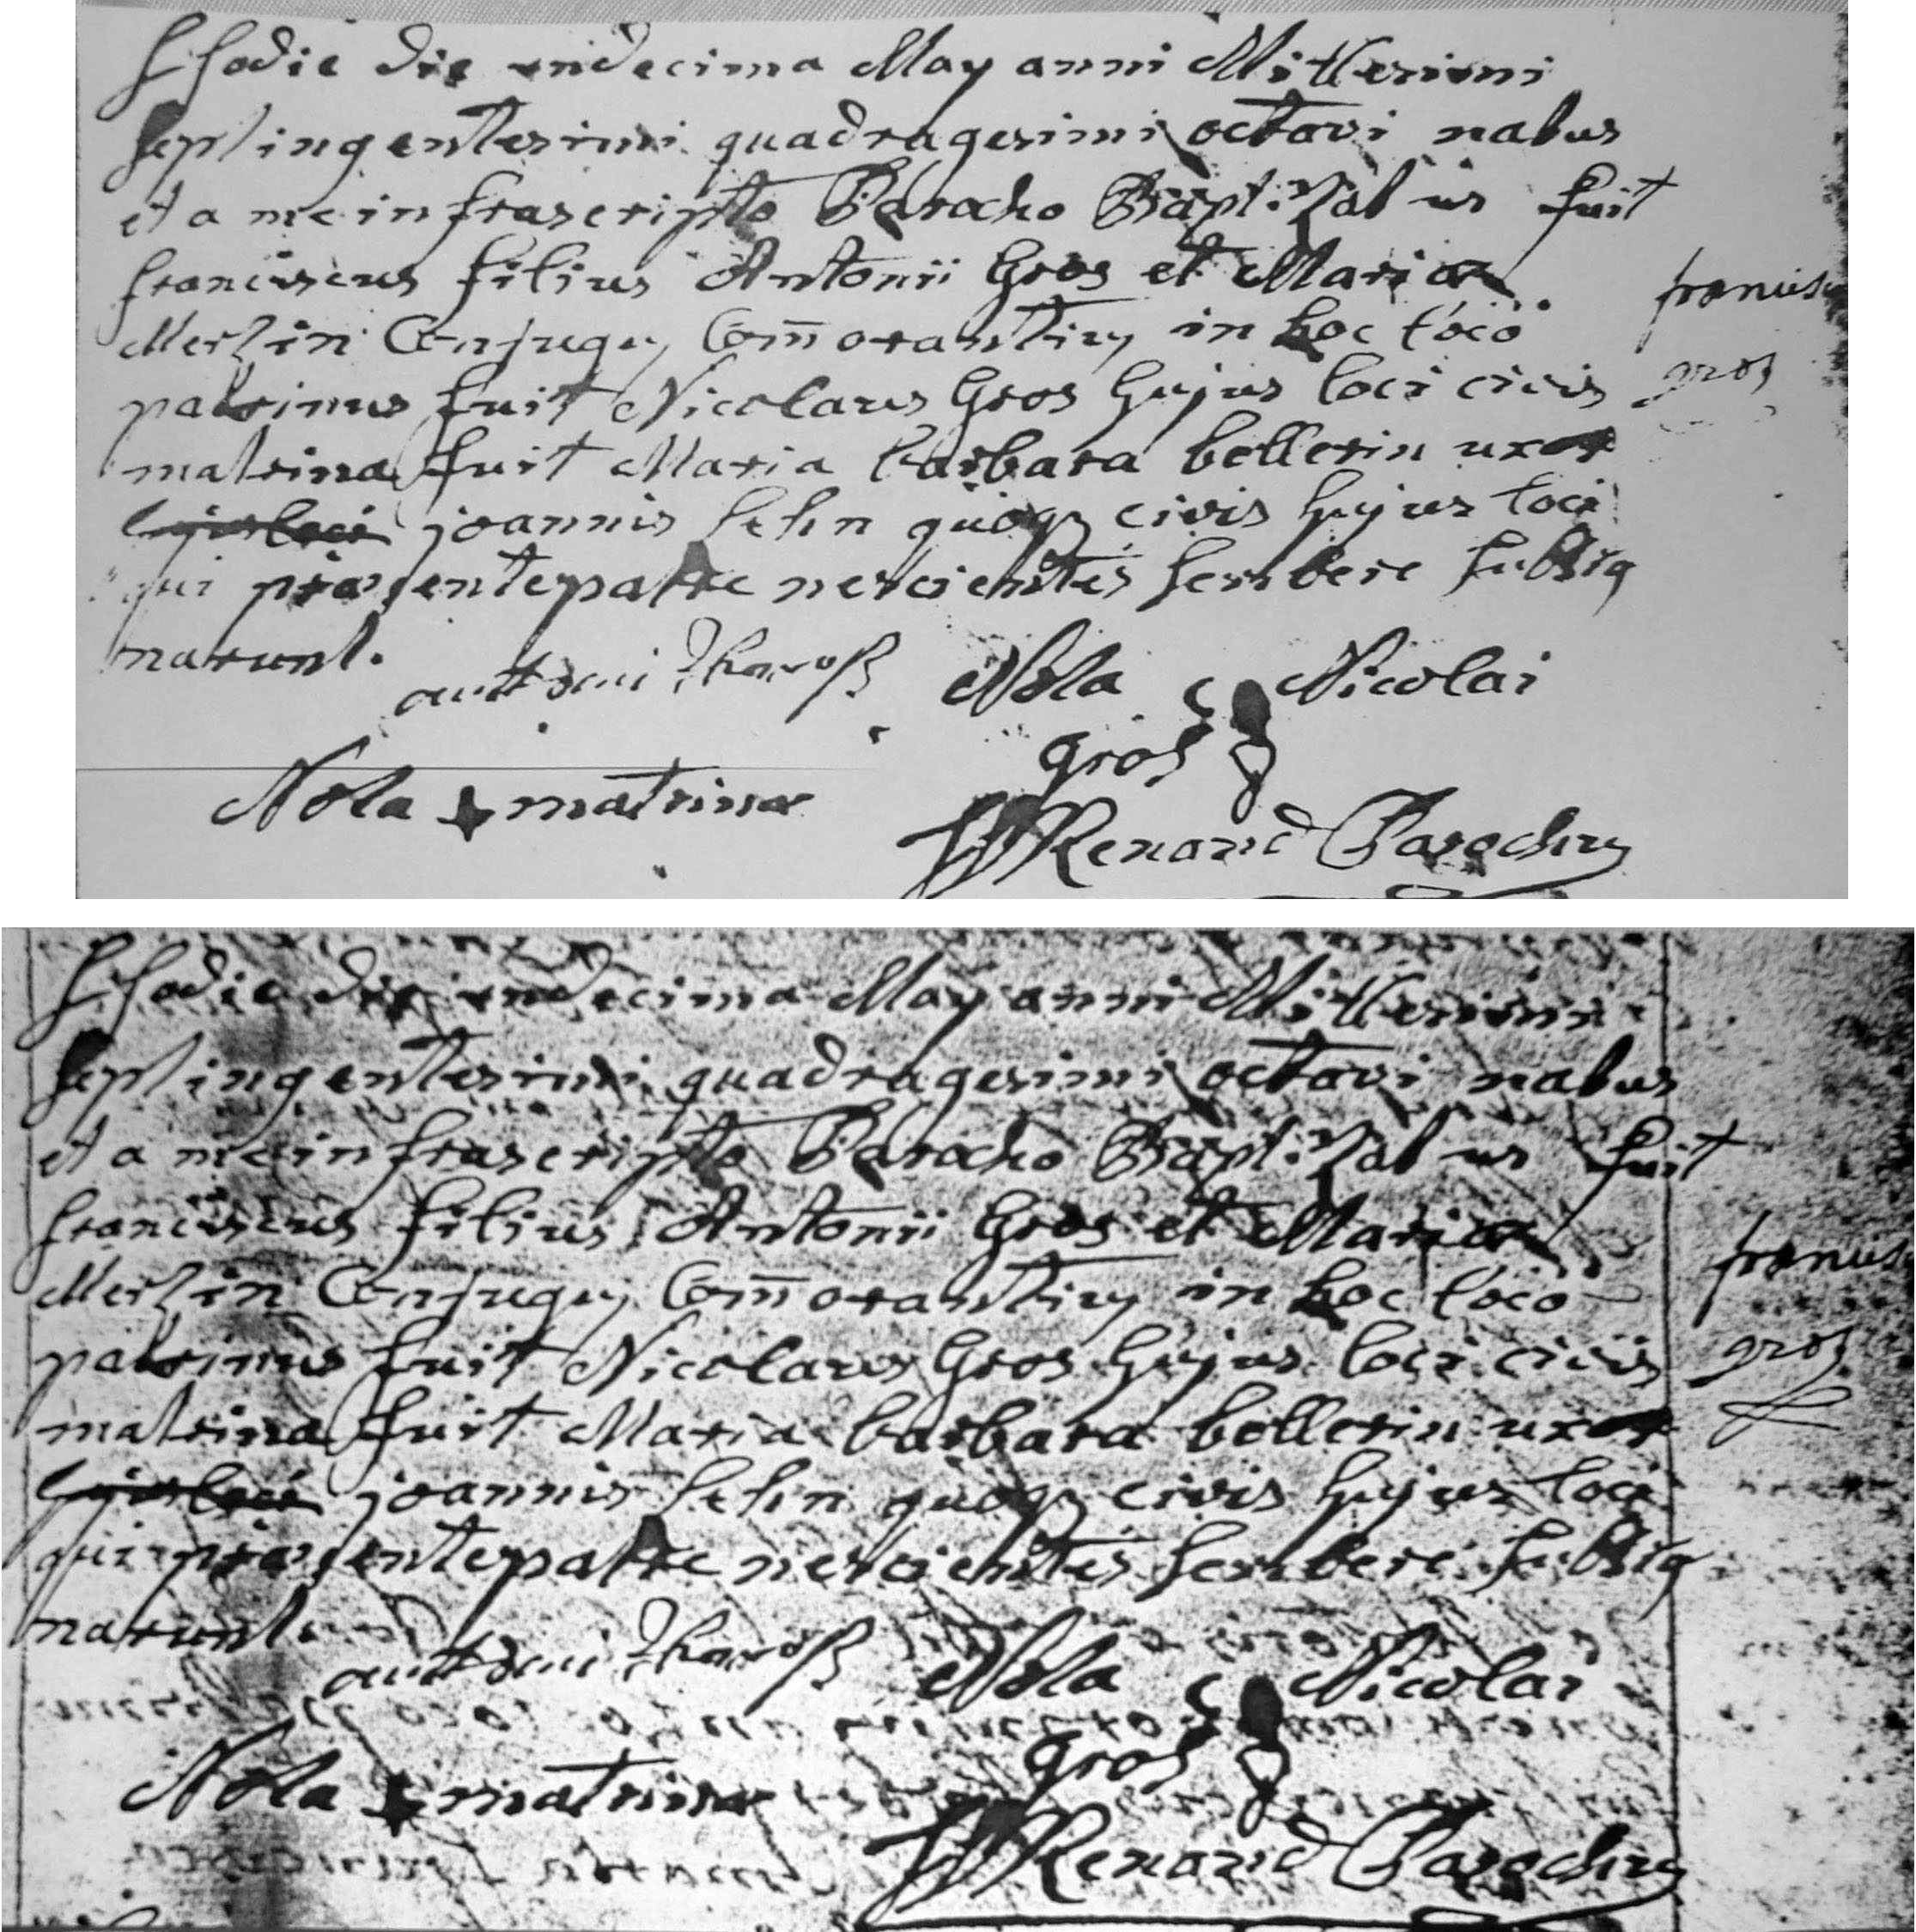 Hodie die undecima May anni Millesimi
septingentesimi quadragesimi octavi natus
et a me infrascripto Parocho Baptizatus fuit
franciscus filius Antonii Gros et Mariæ
Merlin Conjugū Com̄orantiū in hoc loco
patrinus fuit Nicolaus Gros hujus loci civis
matrina fuit Maria barbara bellerin uxor
hujus loci joannis Hehn quoqȝ civis hujus loci
qui præsente patre nescientes scribere subsig
narunt.
francisc
gros
Nota Nicolai
gros
Nota + matrinæ
Renard Parochus
Hodie die undecima May anni Millesimi
septingentesimi quadragesimi octavi natus
et a me infrascripto Parocho Baptizatus fuit
franciscus filius Antonii Gros et Mariæ
Merlin Conjugū Com̄orantiū in hoc loco
patrinus fuit Nicolaus Gros hujus loci civis
matrina fuit Maria barbara bellerin uxor
hujus loci joannis Hehn quoqȝ civis hujus loci
qui præsente patre nescientes scribere subsig
narunt.
francis
gros
Nota Nicolai
gros
Nota + matrinæ
Renard Parochus